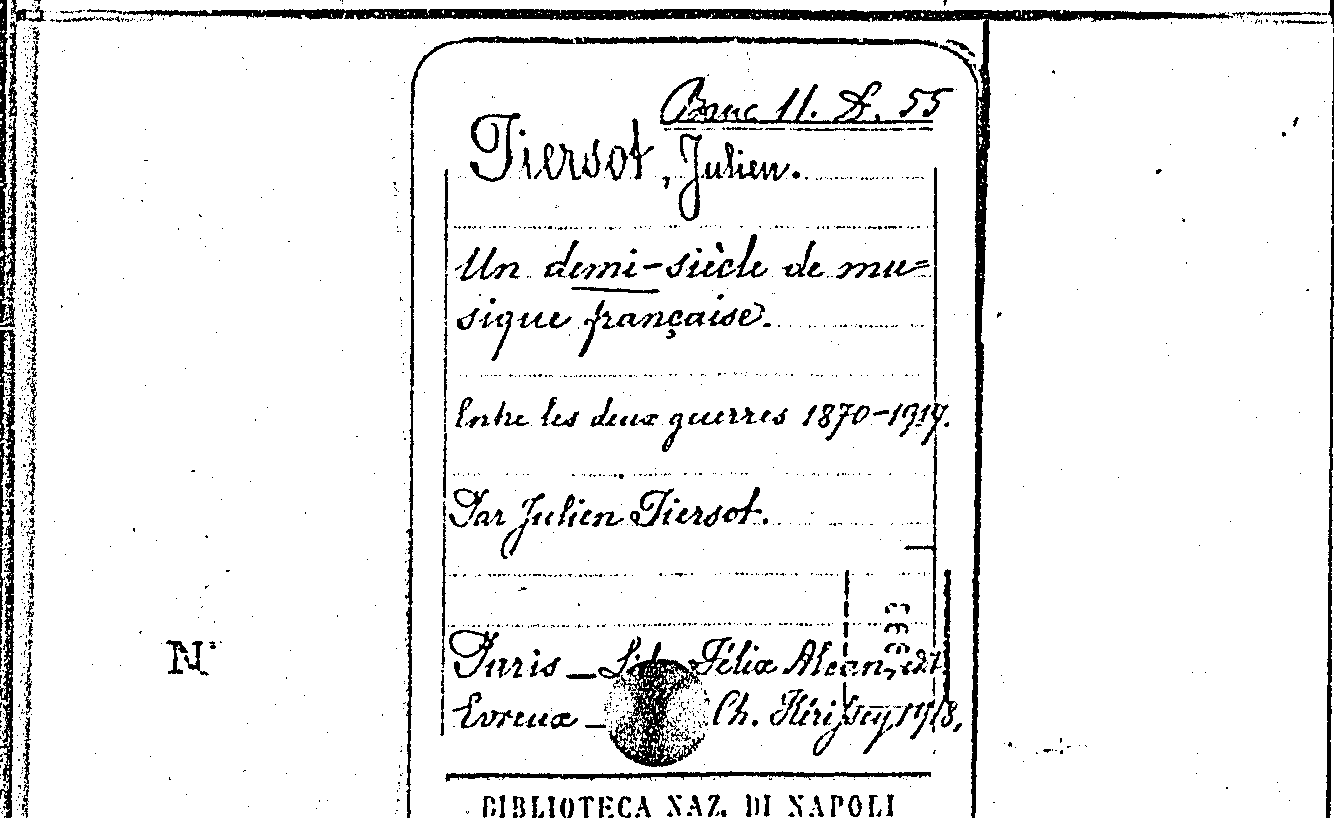 Banc 11. D. 55
Tiersot, Julien.
Un demi-siècle de mu=
sique française.
Entre les deux guerres 1870-1917.
Par Julien Tiersot.
Paris - Félix Alcan,
N°
Evreux - Ch. Hérissey, 1918.
BIBLIOTECA NAZ. DI NAPOLI